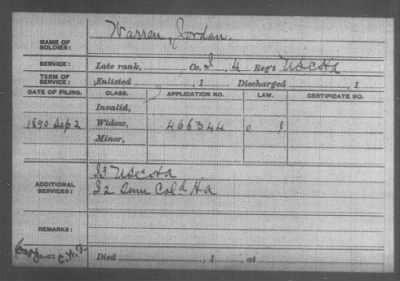 NAME OF SOLDIER: Warren, Jordan.
SERVICE: Late rank, Co. I, 4 Reg't U S C H A
TERM OF SERVICE: Enlisted , 1 Discharged , 1
DATE OF FILING. CLASS. APPLICATION NO. LAW. CERTIFICATE NO.
Invalid,
1890 Sep 2 Widow, 466344
Minor,
ADDITIONAL SERVICES:
I3 USCHA
I2 Tenn Col'd H A
REMARKS:
Died , 1 , at